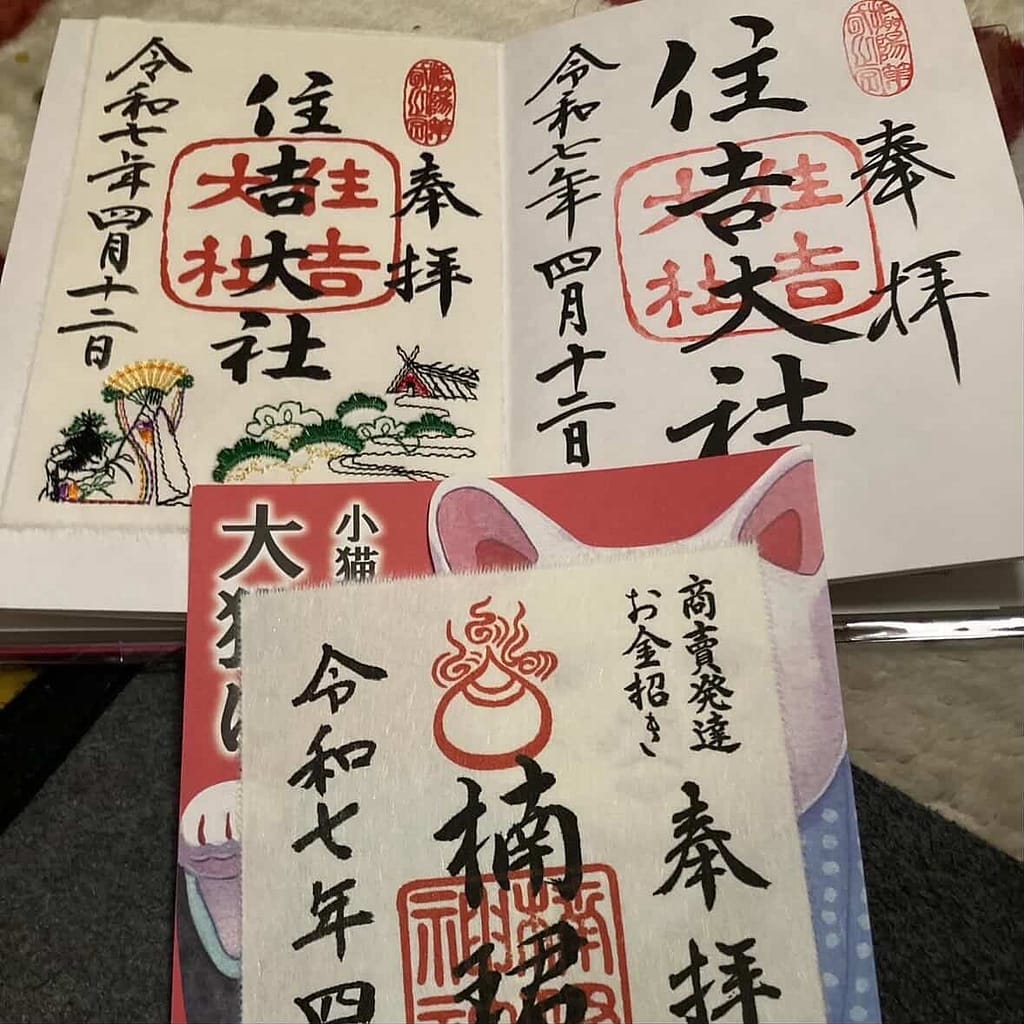 奉拝
住吉大社
住吉大社
令和七年四月十二日
奉拝
住吉大社
住吉大社
令和七年四月十二日
小猫
大
商賣発達
お金招き
奉拝
楠珺
令和七年四